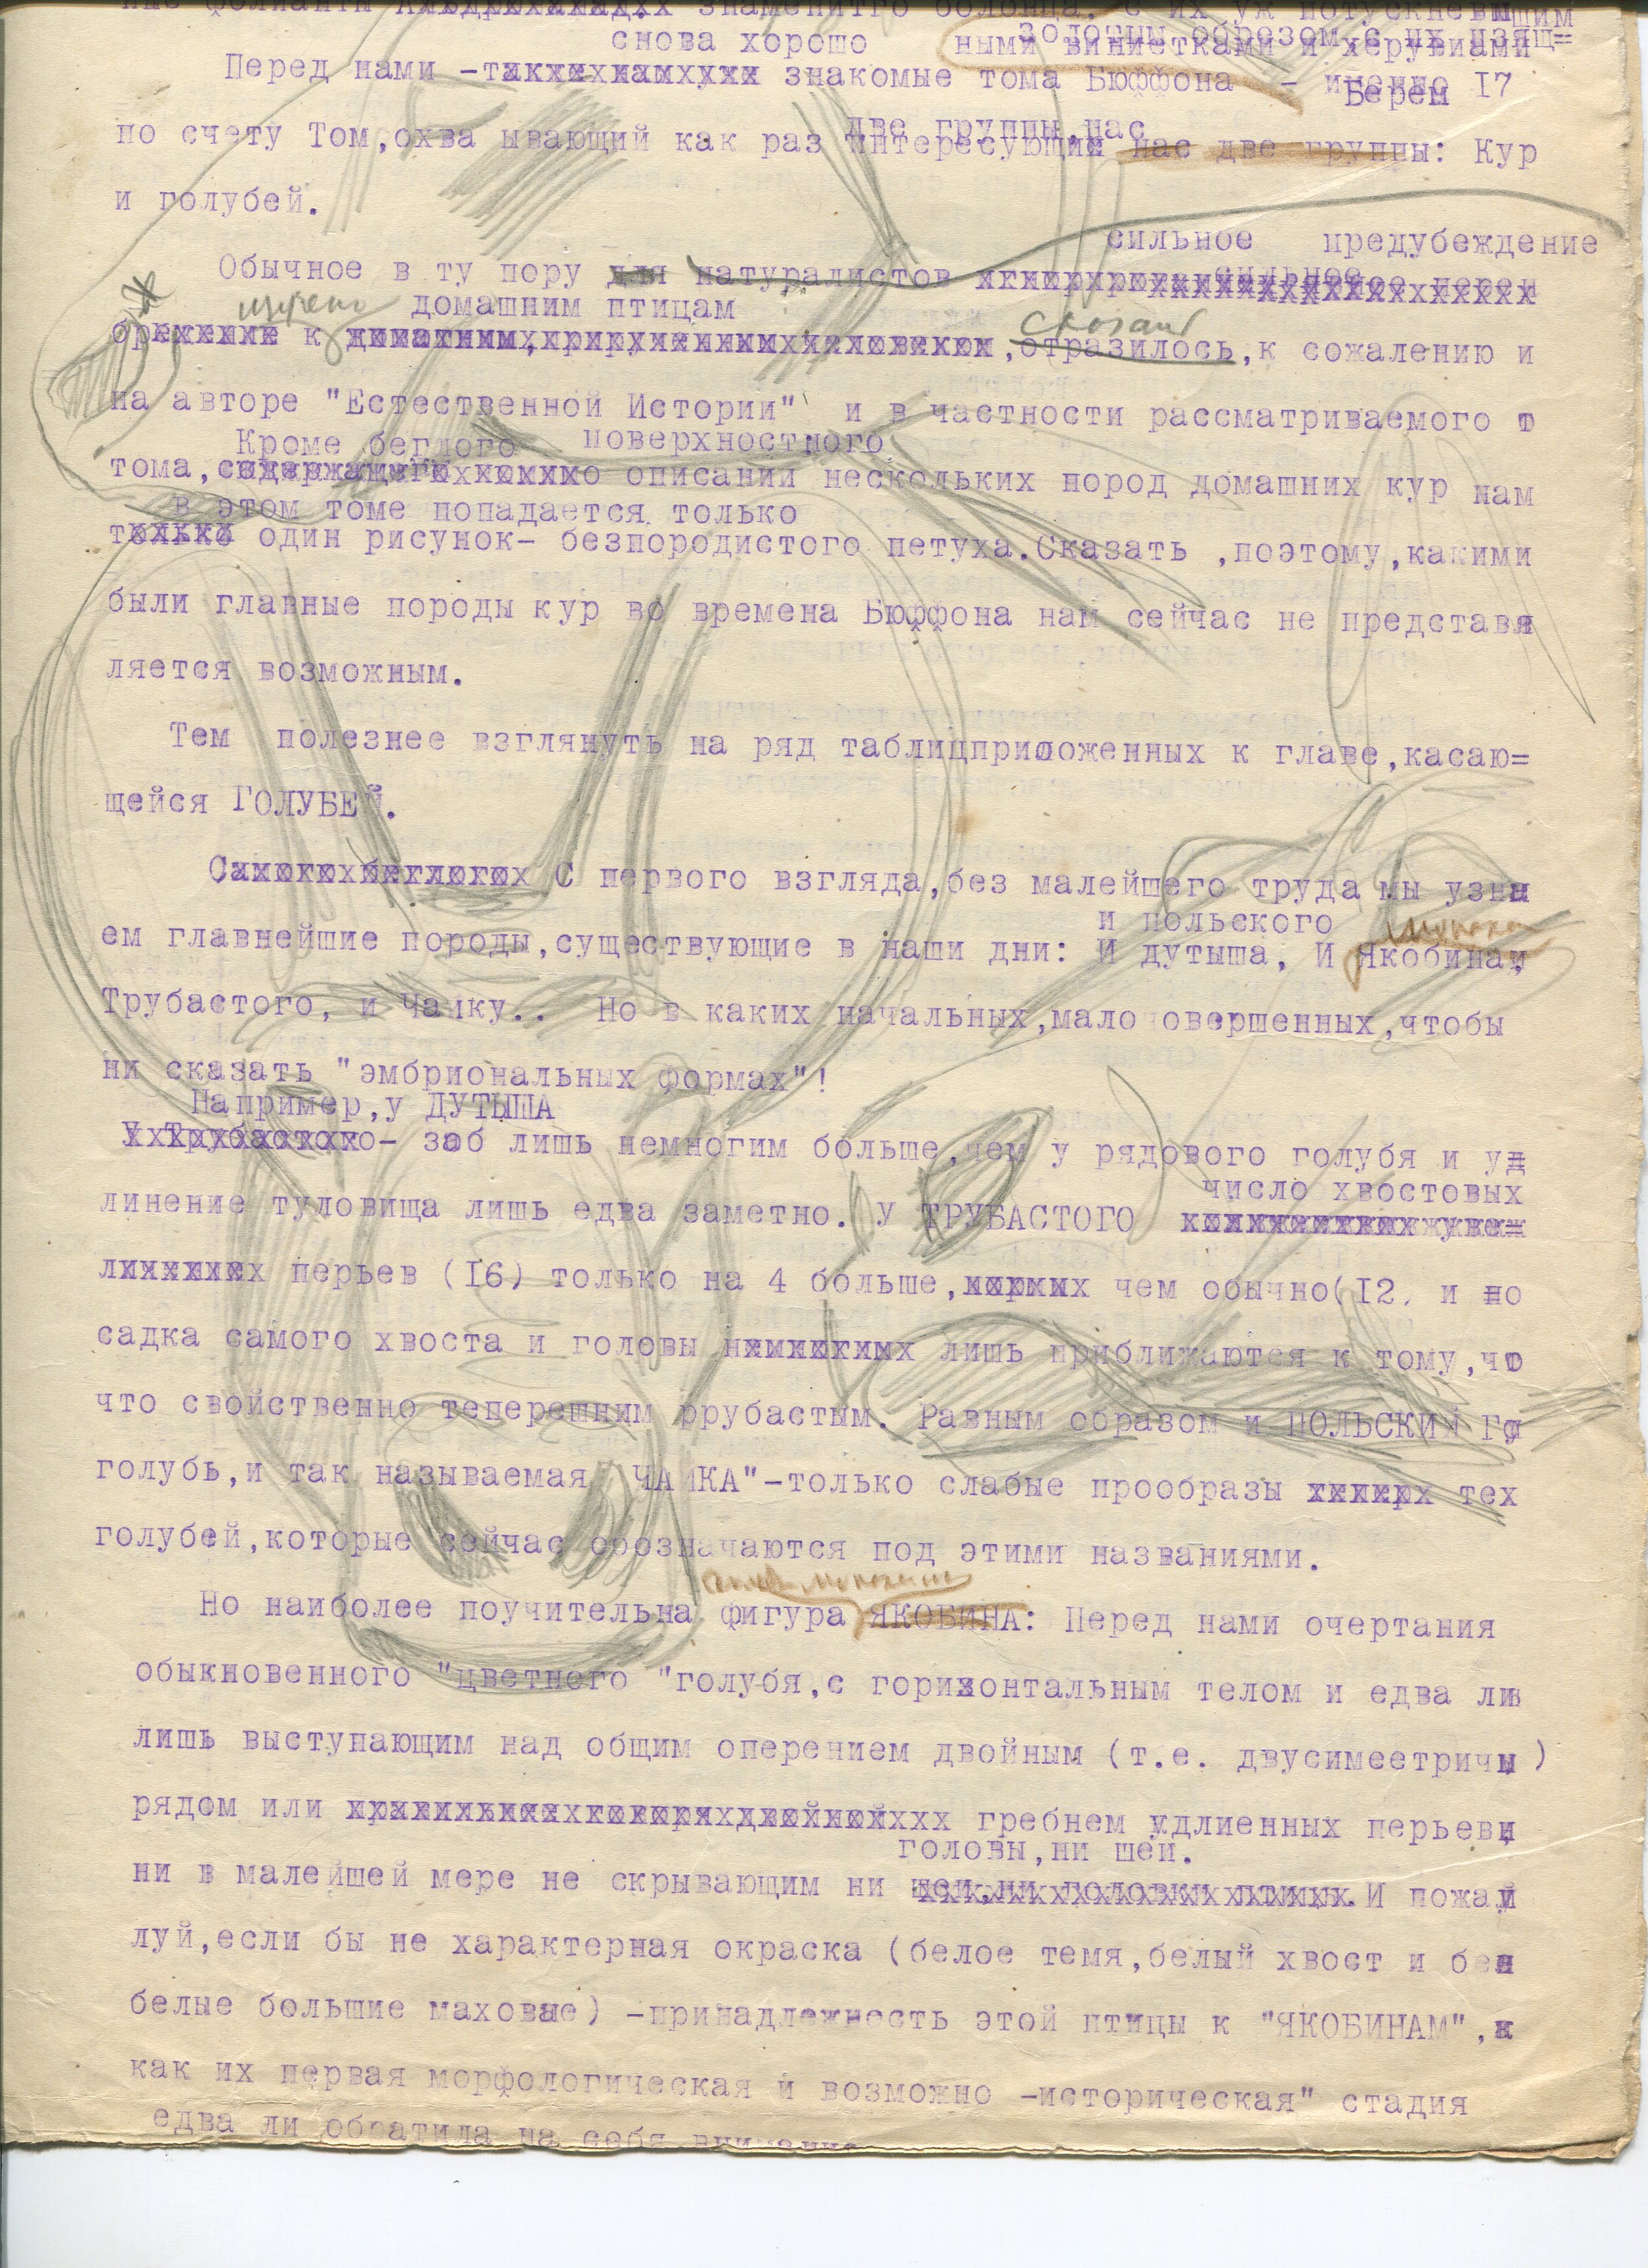 ные фолианты знаменитго болонца, с их уж потускневшим
золотым обрезом с их изящ=
снова хорошо ными виниетками и херувимами
Перед нами - знакомые тома Бюффона - именно 17
Берем
две группы, нас
по счету Том,охва ывающий как раз интересующий нас две группы: Кур
и голубей.
сильное предубеждение
Обычное в ту пору для натуралистов
домашним птицам
к , отразилось,к сожалению и
на авторе "Естественной Истории" и в частности рассматриваемого т
Кроме беглого поверхностного
тома, описании нескольких пород домашних кур нам
в этом томе попадается только
только один рисунок- безпородистого петуха.Сказать ,поэтому,какими
были главные породы кур во времена Бюффона нам сейчас не представл
ляется возможным.
Тем полезнее взглянуть на ряд таблицприложенных к главе,касаю=
щейся ГОЛУБЕЙ.
Самого беглого С первого взгляда,без малейшего труда мы узна
и польского
ем главнейшие породы,существующие в наши дни: И дутыша, И Якобина,и
Трубастого, и Чайку.. Но в каких начальных,мало совершенных,чтобы
ни сказать "эмбриональных формах"!
Например,у ДУТЫША
У Трубастого- зоб лишь немногим больше,чем у рядового голубя и уд
число хвостовых
линение туловища лишь едва заметно. У ТРУБАСТОГО
перьев (16) только на 4 больше, чем обычно(12. и по
садка самого хвоста и головы лишь приближаются к тому,что
что свойственно теперешним ррубастым. Равным образом и ПОЛЬСКИЙ Го
голубь,и так называемая ЧАЙКА"-только слабые прообразы тех
голубей,которые сейчас обозначаются под этими названиями.
Но наиболее поучительна фигура ЯКОБИНА: Перед нами очертания
обыкновенного "цветного "голубя,с горизонтальным телом и едва ли
лишь выступающим над общим оперением двойным (т.е. двусимеетричн )
рядом или гребнем удлиенных перьев,
головы,ни шеи.
ни в малейшей мере не скрывающим ни шеи,ни головки птицы.И пожал
луй,если бы не характерная окраска (белое темя,белый хвост и бел
белые большие маховые) -принадлежность этой птицы к "ЯКОБИНАМ",к
как их первая морфологическая и возможно -историческая" стадия
едва ли обратила на себя внимание